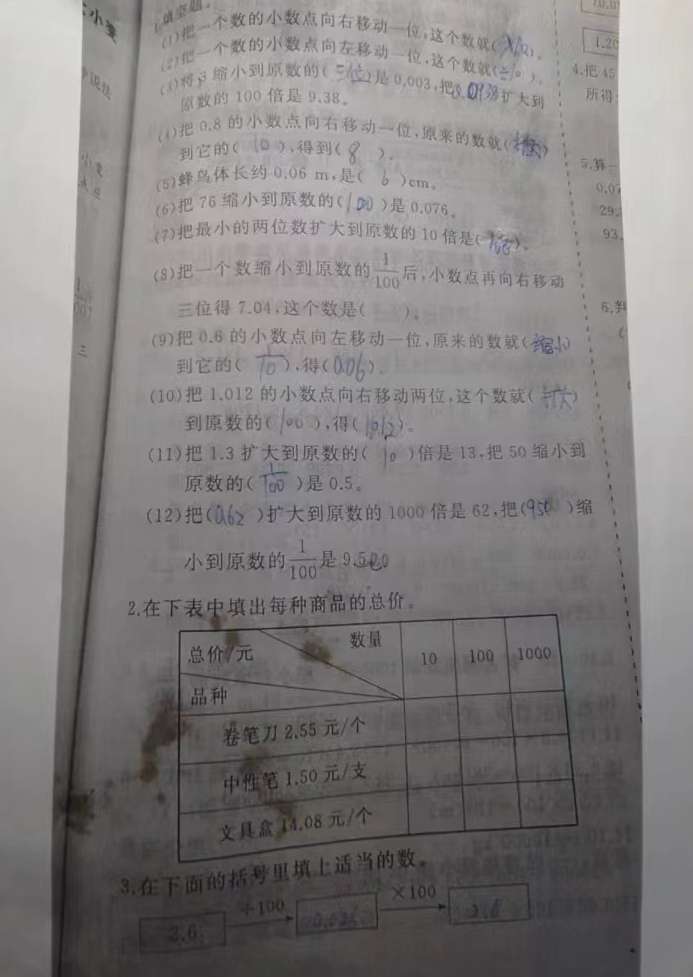 小变
1.填空题。
(1)把一个数的小数点向右移动一位,这个数就(×10)。
(2)把一个数的小数点向左移动一位,这个数就(÷10)。
(3)将3缩小到原数的( )是0.003,把0.0938扩大到
原数的100倍是9.38。
(4)把0.8的小数点向右移动一位,原来的数就(扩大)
到它的(10),得到(8)。
(5)蜂鸟体长约0.06 m,是(6)cm。
(6)把76缩小到原数的(100)是0.076。
(7)把最小的两位数扩大到原数的10倍是( )。
(8)把一个数缩小到原数的1/100后,小数点再向右移动
三位得7.04,这个数是( )。
(9)把0.6的小数点向左移动一位,原来的数就(缩小)
到它的(1/10),得(0.06)。
(10)把1.012的小数点向右移动两位,这个数就(扩大)
到原数的(100),得(101.2)。
(11)把1.3扩大到原数的(10)倍是13,把50缩小到
原数的(1/100)是0.5。
(12)把(0.62)扩大到原数的1000倍是62,把(950)缩
小到原数的1/100是9.5。
2.在下表中填出每种商品的总价。
数量
总价/元 10 100 1000
品种
卷笔刀2.55元/个
中性笔1.50元/支
文具盒14.08元/个
3.在下面的括号里填上适当的数。
÷100 ×100
2.6 0.026 2.6
1.20
4.把45
所得
5.算一
0.07
29.
93.